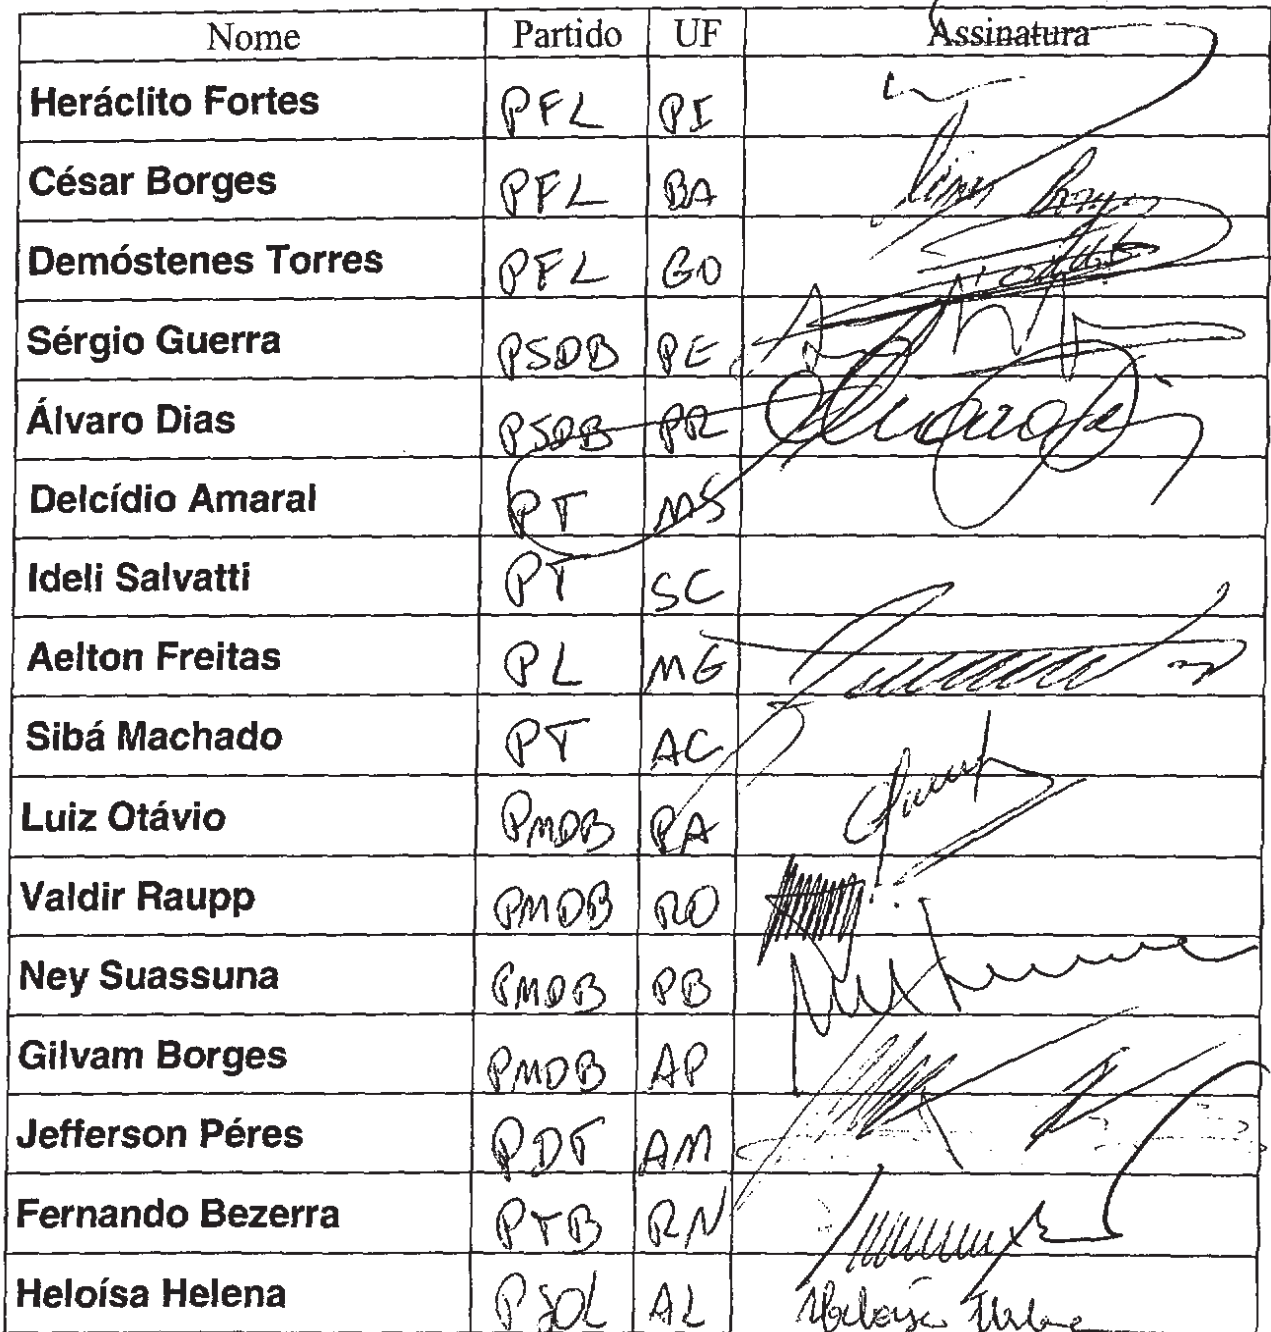 Nome Partido UF Assinatura
Heráclito Fortes PFL PI
César Borges PFL BA
Demóstenes Torres PFL GO
Sérgio Guerra PSDB PE
Álvaro Dias PSDB PR
Delcídio Amaral PT MS
Ideli Salvatti PT SC
Aelton Freitas PL MG
Sibá Machado PT AC
Luiz Otávio PMDB PA
Valdir Raupp PMDB RO
Ney Suassuna PMDB PB
Gilvam Borges PMDB AP
Jefferson Péres PDT AM
Fernando Bezerra PTB RN
Heloísa Helena PSOL AL Heloísa Helena